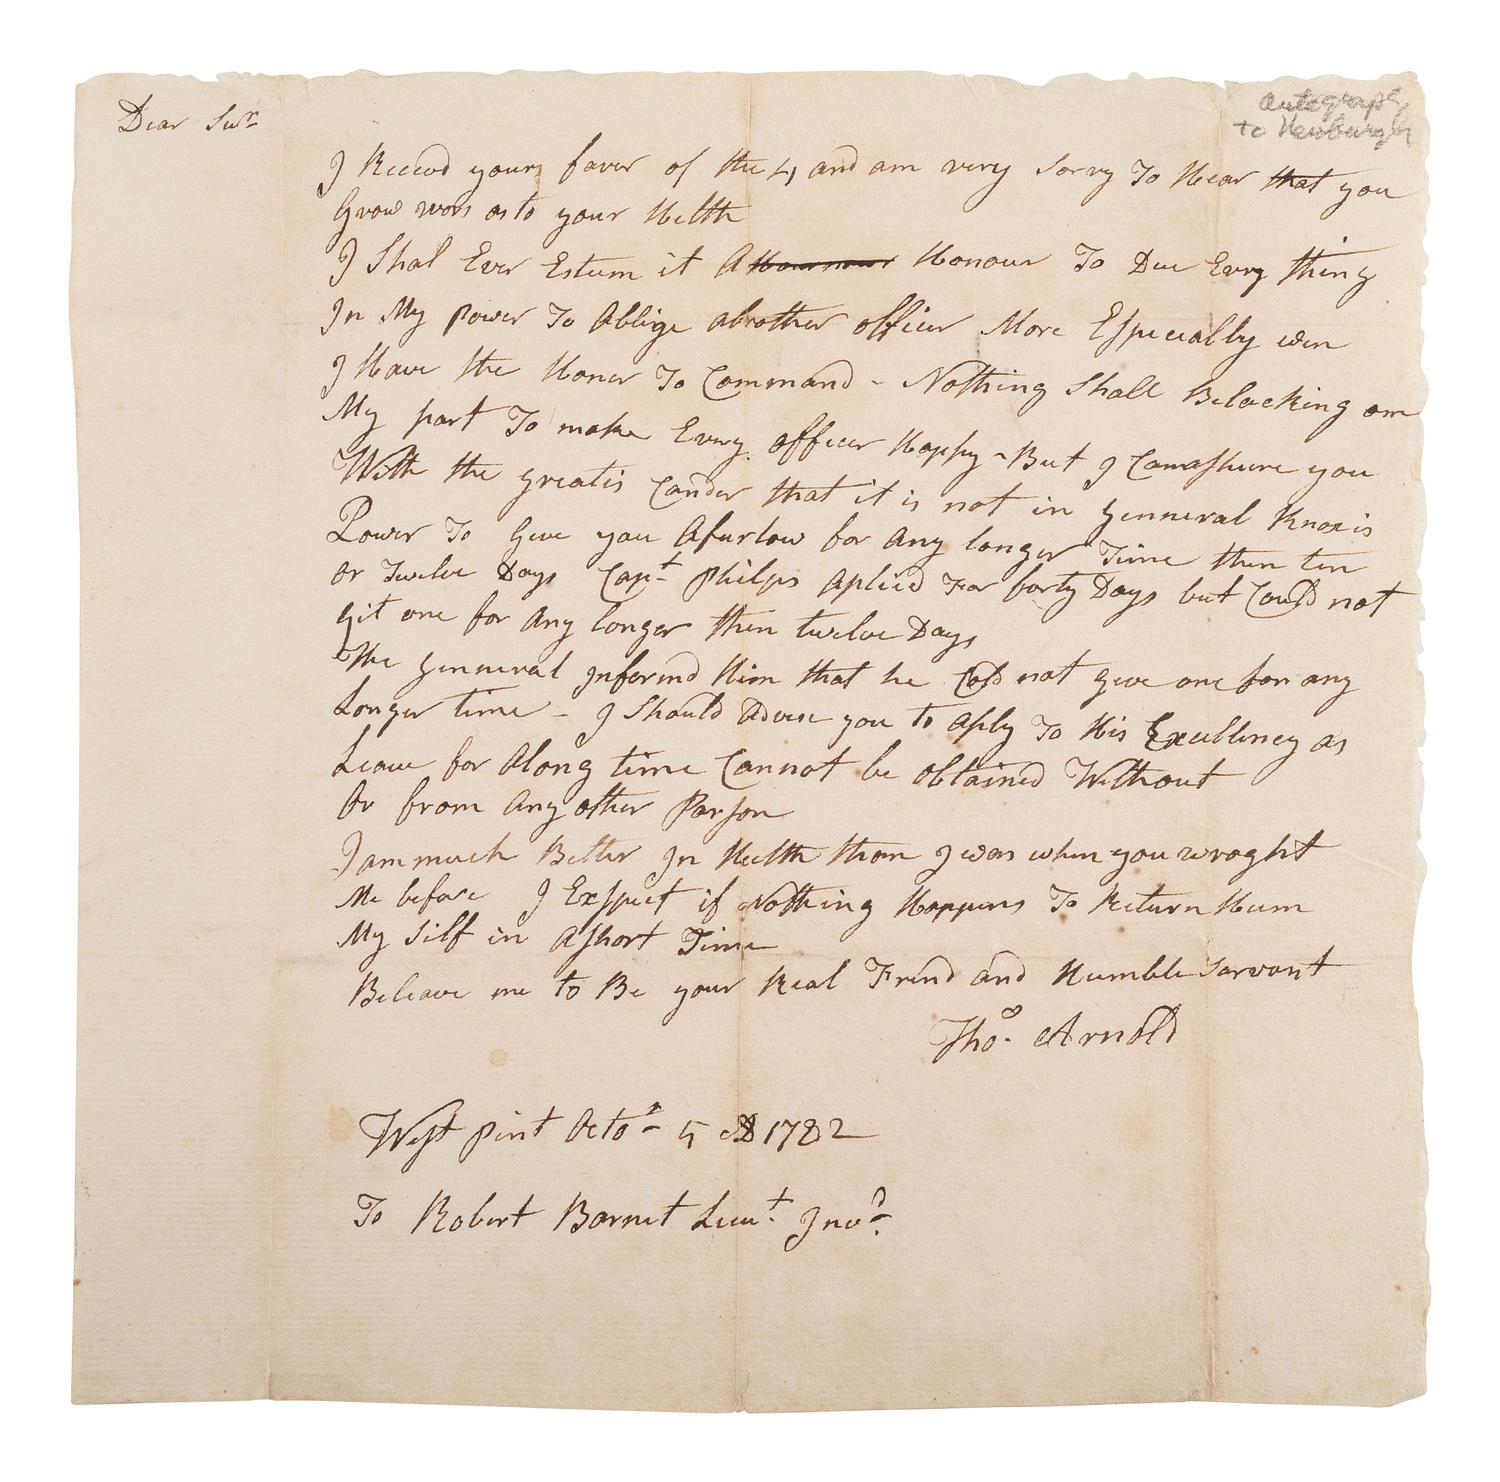 Dear Sur
autograph
to Newburgh
I Receivd yours favor of the 4 and am very Sorry To Hear that you
Grow wors as to your Helth
I Shal Ever Esteem it A Honnour Honour To Due Evry thing
In My power To Ablige abrother officer More Especially wen
I Have the Honer To Command - Nothing Shall Belacking on
My part To make Every officer Happy - But I Canashure you
With the greatis Cander that it is not in Genneral Knoxis
Power To Give you Afurlow for Any longer Time then ten
or Twelve Days Capt Philps Aplied For forty Days but Could not
git one for Any longer then twelve Days
The Genneral Informd Him that he Cold not Give one for any
Longer time - I Should Advise you to Aply To His Excellency as
Leave for Along time Cannot be obtained Without
Or from Any other Parson
I am much Better In Helth than I was when you wroght
Me before I Expect if Nothing Happens To Return Hum
My Self in Ashort Time
Beleave me to Be your Real Frend and Humble Sarvant
Thos. Arnold
West Pint Octor 5 AD 1782
To Robert Barnet Lieut. Invd.